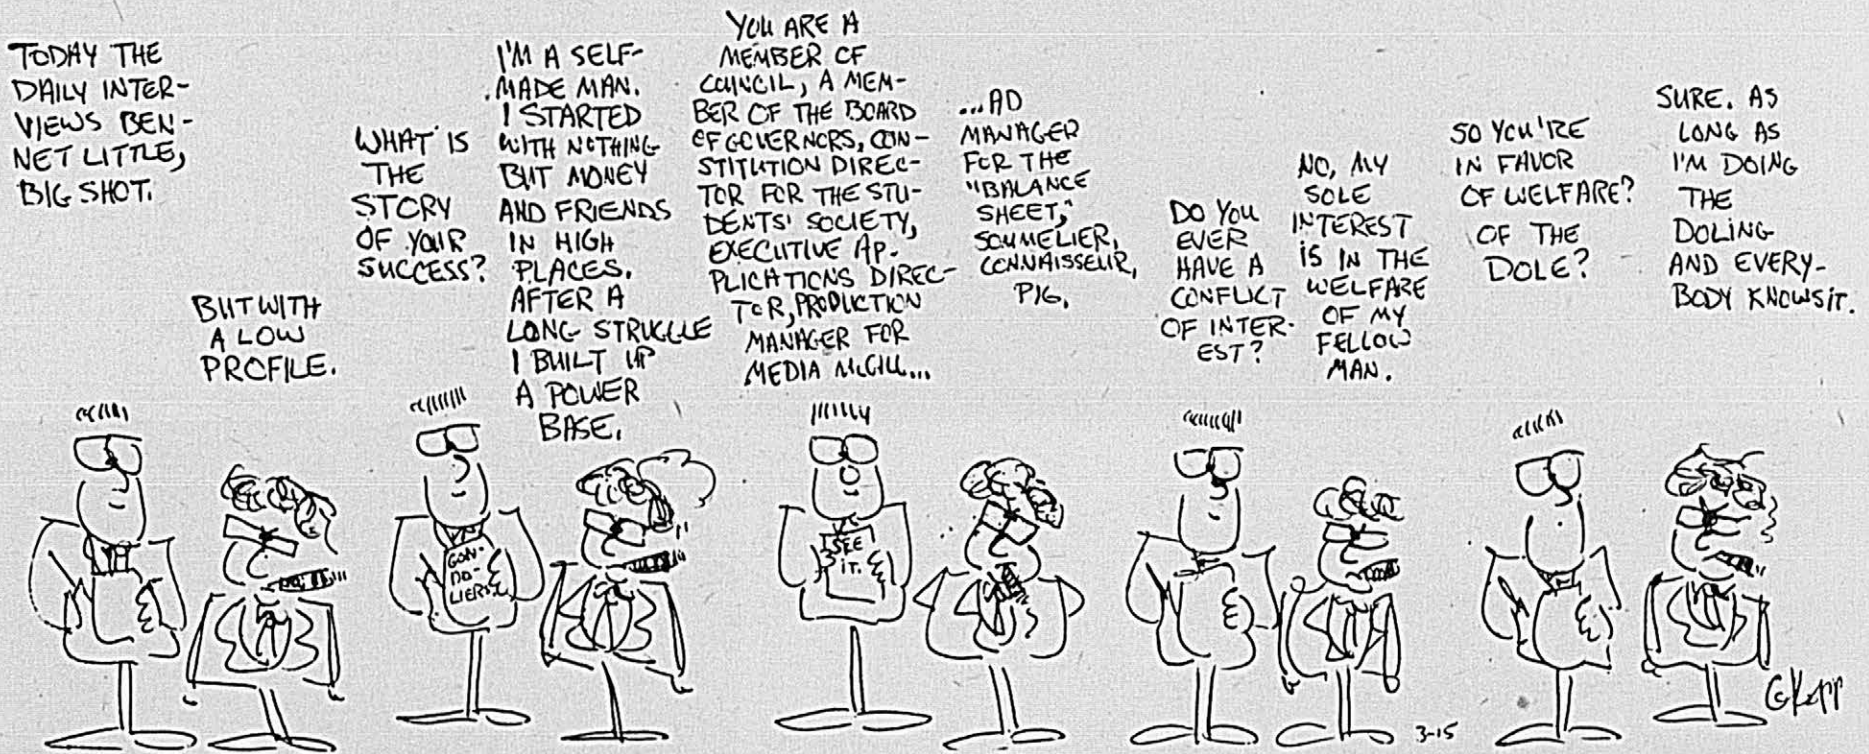 TODAY THE
DAILY INTER-
VIEWS BEN-
NET LITTLE,
BIG SHOT.
BUT WITH
A LOW
PROFILE.
WHAT IS
THE
STORY
OF YOUR
SUCCESS?
I'M A SELF-
MADE MAN.
I STARTED
WITH NOTHING
BUT MONEY
AND FRIENDS
IN HIGH
PLACES.
AFTER A
LONG STRUGGLE
I BUILT UP
A POWER
BASE.
GON-
DO-
LIERS
YOU ARE A
MEMBER OF
COUNCIL, A MEM-
BER OF THE BOARD
OF GOVERNORS, CON-
STITUTION DIREC-
TOR FOR THE STU-
DENTS' SOCIETY,
EXECUTIVE AP-
PLICATIONS DIREC-
TOR, PRODUCTION
MANAGER FOR
MEDIA McGILL...
SEE
IT.
...AD
MANAGER
FOR THE
"BALANCE
SHEET,"
SOMMELIER,
CONNAISSEUR,
PIG.
DO YOU
EVER
HAVE A
CONFLICT
OF INTER-
EST?
NO, MY
SOLE
INTEREST
IS IN THE
WELFARE
OF MY
FELLOW
MAN.
SO YOU'RE
IN FAVOR
OF WELFARE?
OF THE
DOLE?
SURE. AS
LONG AS
I'M DOING
THE
DOLING
AND EVERY-
BODY KNOWS IT.
3-15
GKopp